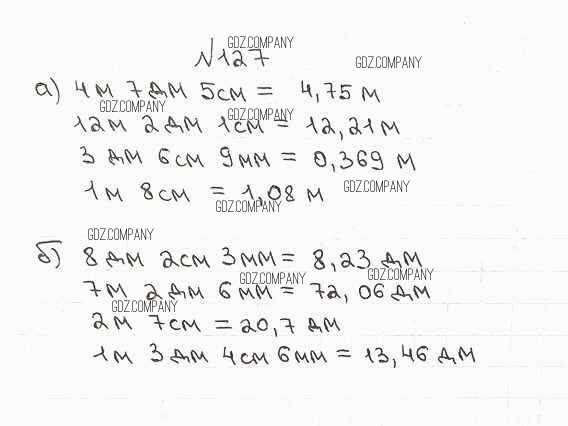 №127 GDZ.COMPANY
GDZ.COMPANY
а) 4м 7дм 5см = 4,75 м
GDZ.COMPANY GDZ.COMPANY
12м 2дм 1см = 12,21м
3 дм 6см 9мм = 0,369 м
1м 8см = 1,08 м GDZ.COMPANY
GDZ.COMPANY
GDZ.COMPANY
б) 8 дм 2см 3мм = 8,23 дм
GDZ.COMPANY GDZ.COMPANY
7м 2дм 6мм = 72,06 дм
GDZ.COMPANY
2м 7см = 20,7 дм
1м 3дм 4см 6мм = 13,46 дм